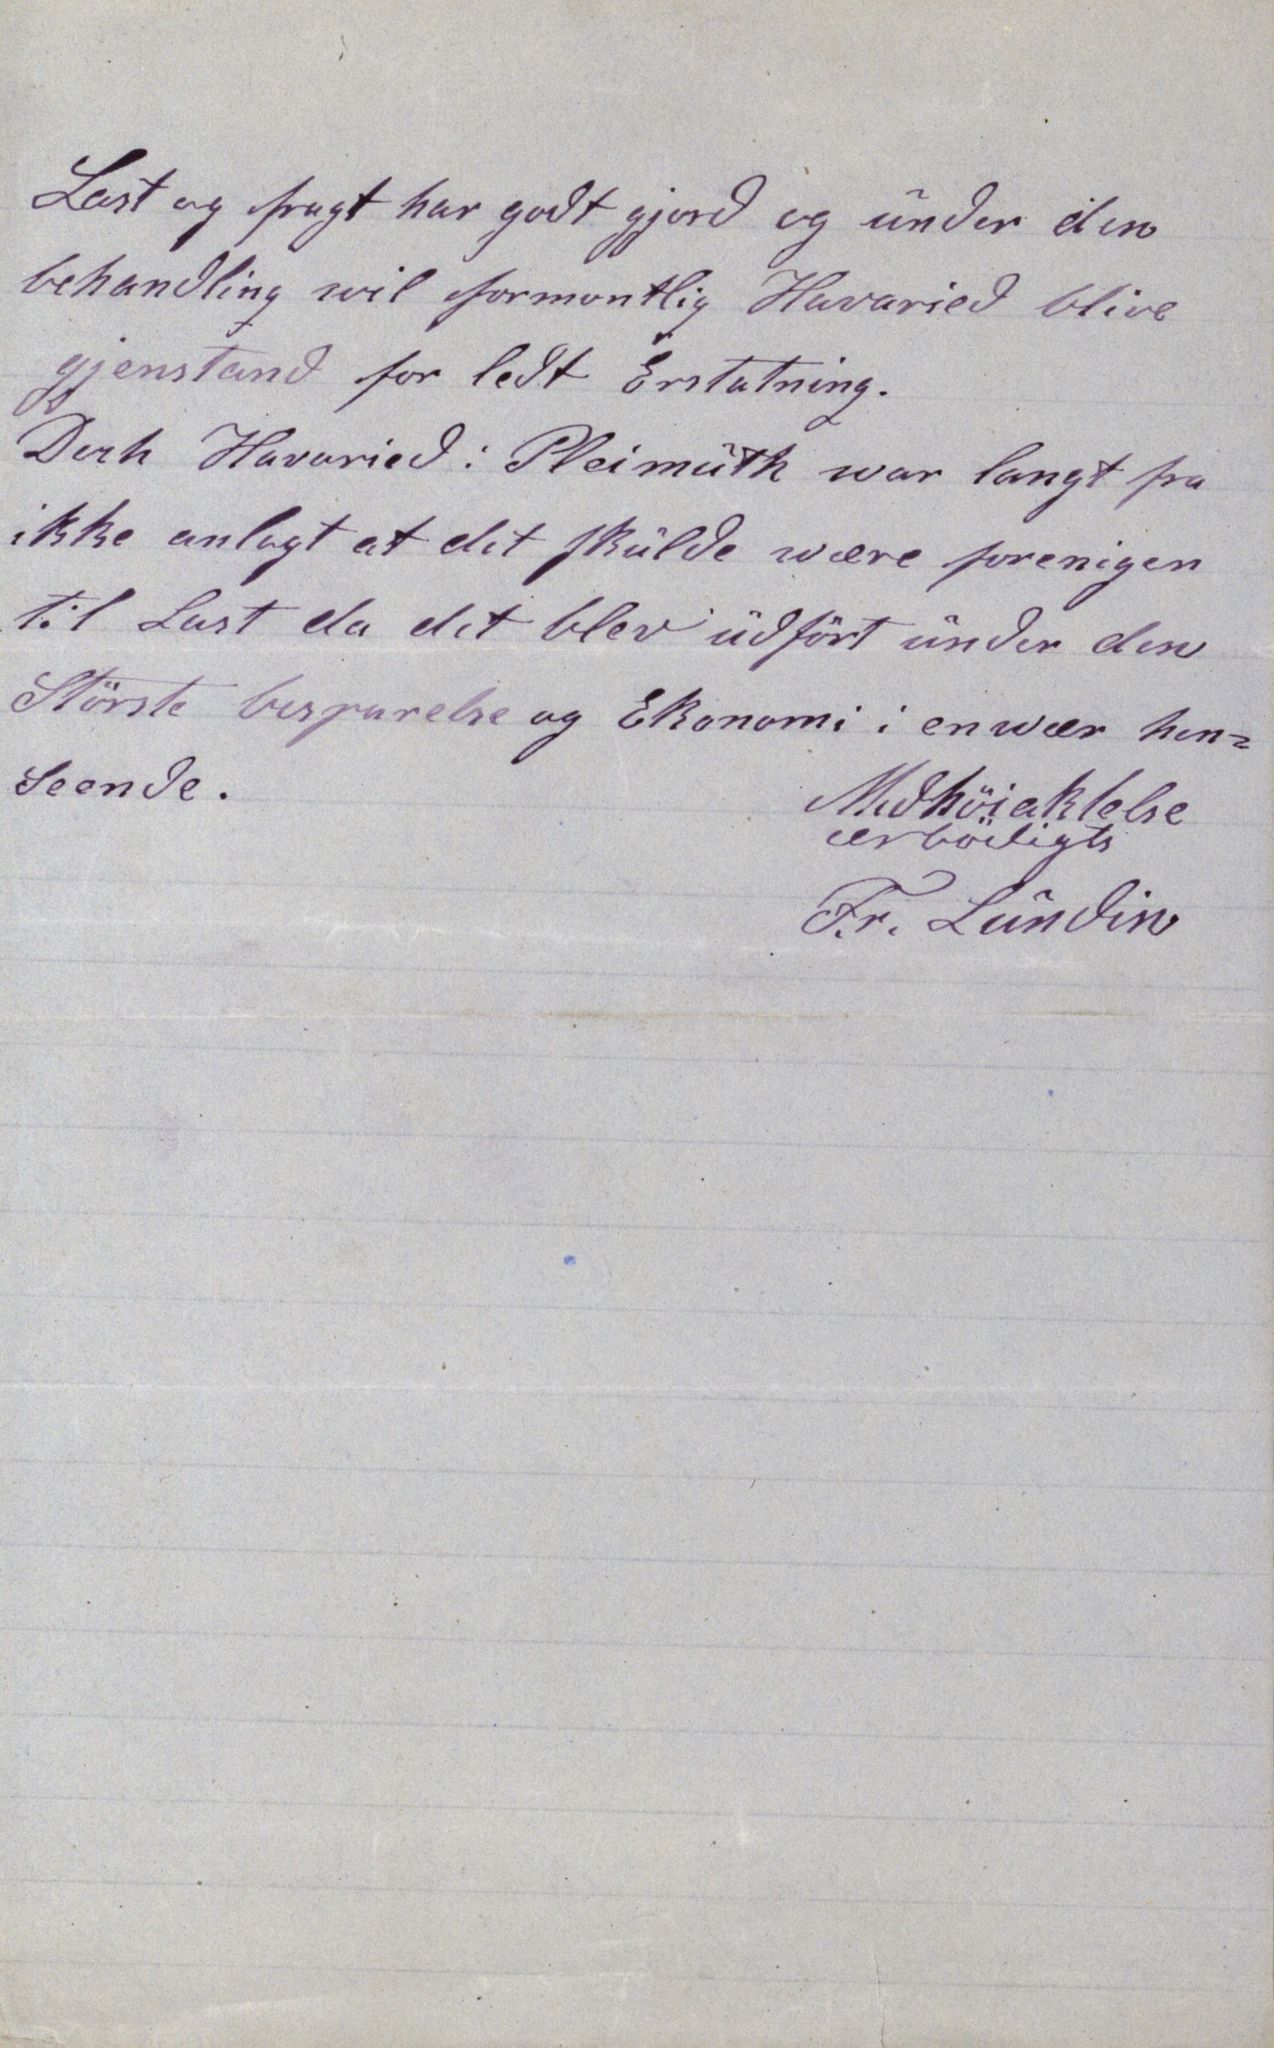 Last og fragt har godt gjord og ünder den
behandling wil formontlig Havaried blive
gjenstand for ledt Erstatning.
Doch Havaried i Pleimüth war langt fra
ikke anlagt at det skülde wære forenigen
til Last da det blev üdfört ünder den
Störste besparelse og Ekonomi i enwær hen=
seende.
Medhöiaktelse
ærbödigts
Fr. Lündin